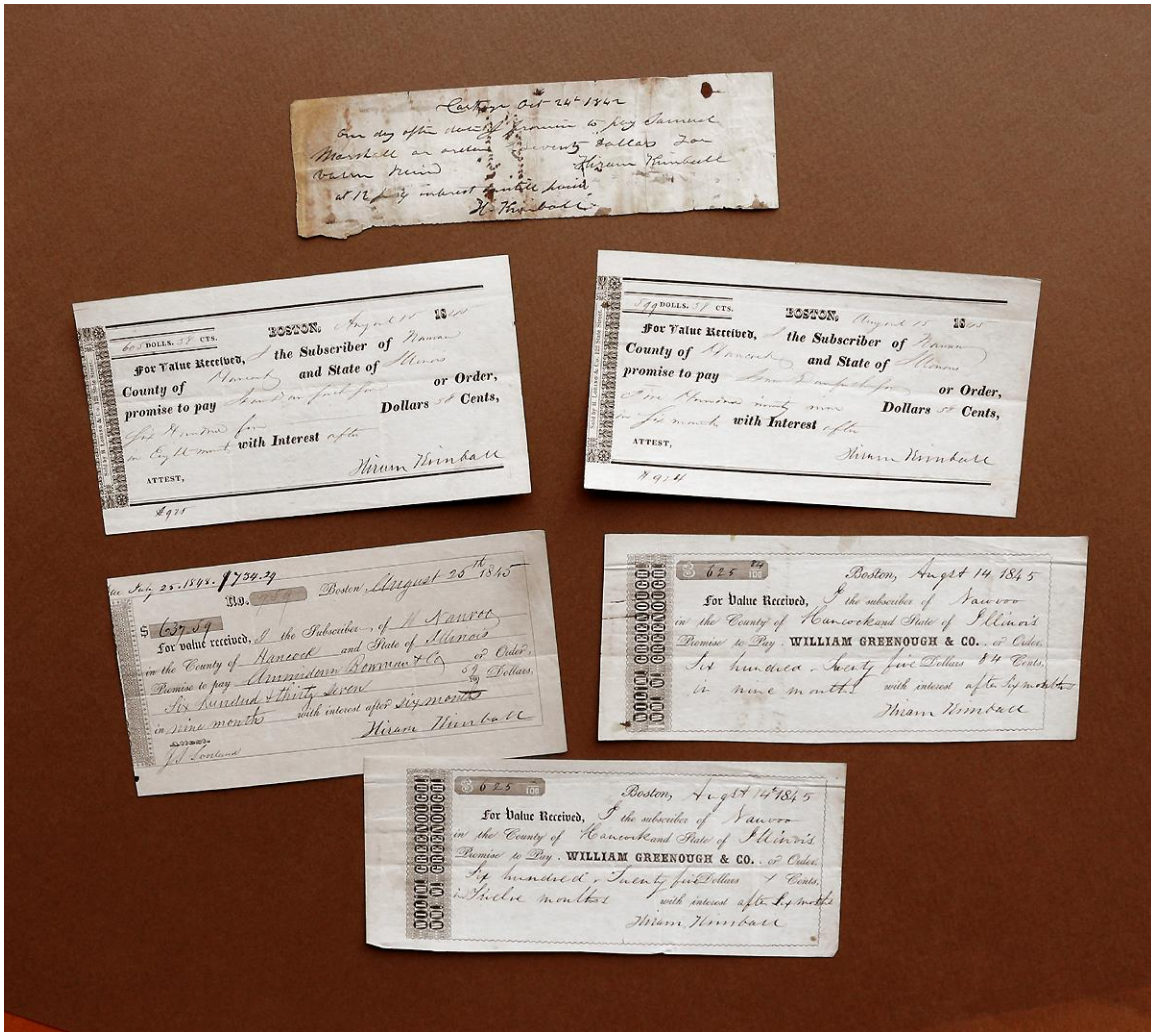 Carthage Oct 24th 1842
One day after date I promise to pay Samuel
Marshall or order Seventy Dollars For
value
Hiram Kimball
at 12 interest untill paid
H. Kimball
605 DOLLS. 58 CTS.
BOSTON, August 15 18
For Value Received, I the Subscriber of Nauvoo
County of Hancock and State of Illinois
promise to pay or Order,
Six Hundred five Dollars 58 Cents,
in Eight with Interest after
ATTEST,
Hiram Kimball
$925
599 DOLLS. 58 CTS.
BOSTON, August 15 18
For Value Received, I the Subscriber of Nauvoo
County of Hancock and State of Illinois
promise to pay or Order,
Five Hundred ninety nine Dollars 58 Cents,
in Six months with Interest after
ATTEST,
Hiram Kimball
$924
July 25. 1848. $734.29
No. Boston August 25th 1845
$ 637.59
For value received, I the Subscriber, of Nauvoo
in the County of Hancock and State of Illinois
Promise to pay Ammidown Bowman & Co or Order,
Six hundred & thirty seven 59/100 Dollars,
in nine months with interest after six months
Attest.
Hiram Kimball
WILLIAM GREENOUGH
$ 625 84/100
Boston, Augst 14 1845
For Value Received, I the subscriber of Nauvoo
in the County of Hancock and State of Illinois
Promise to Pay WILLIAM GREENOUGH & CO. or Order,
Six hundred & Twenty five Dollars 84 Cents,
in nine months with interest after six months
Hiram Kimball
$ 625 /100
Boston, Augst 14th 1845
For Value Received, I the subscriber of Nauvoo
in the County of Hancock and State of Illinois
Promise to Pay WILLIAM GREENOUGH & CO. or Order,
Six hundred & Twenty five Dollars Cents,
in Twelve months with interest after six months
Hiram Kimball